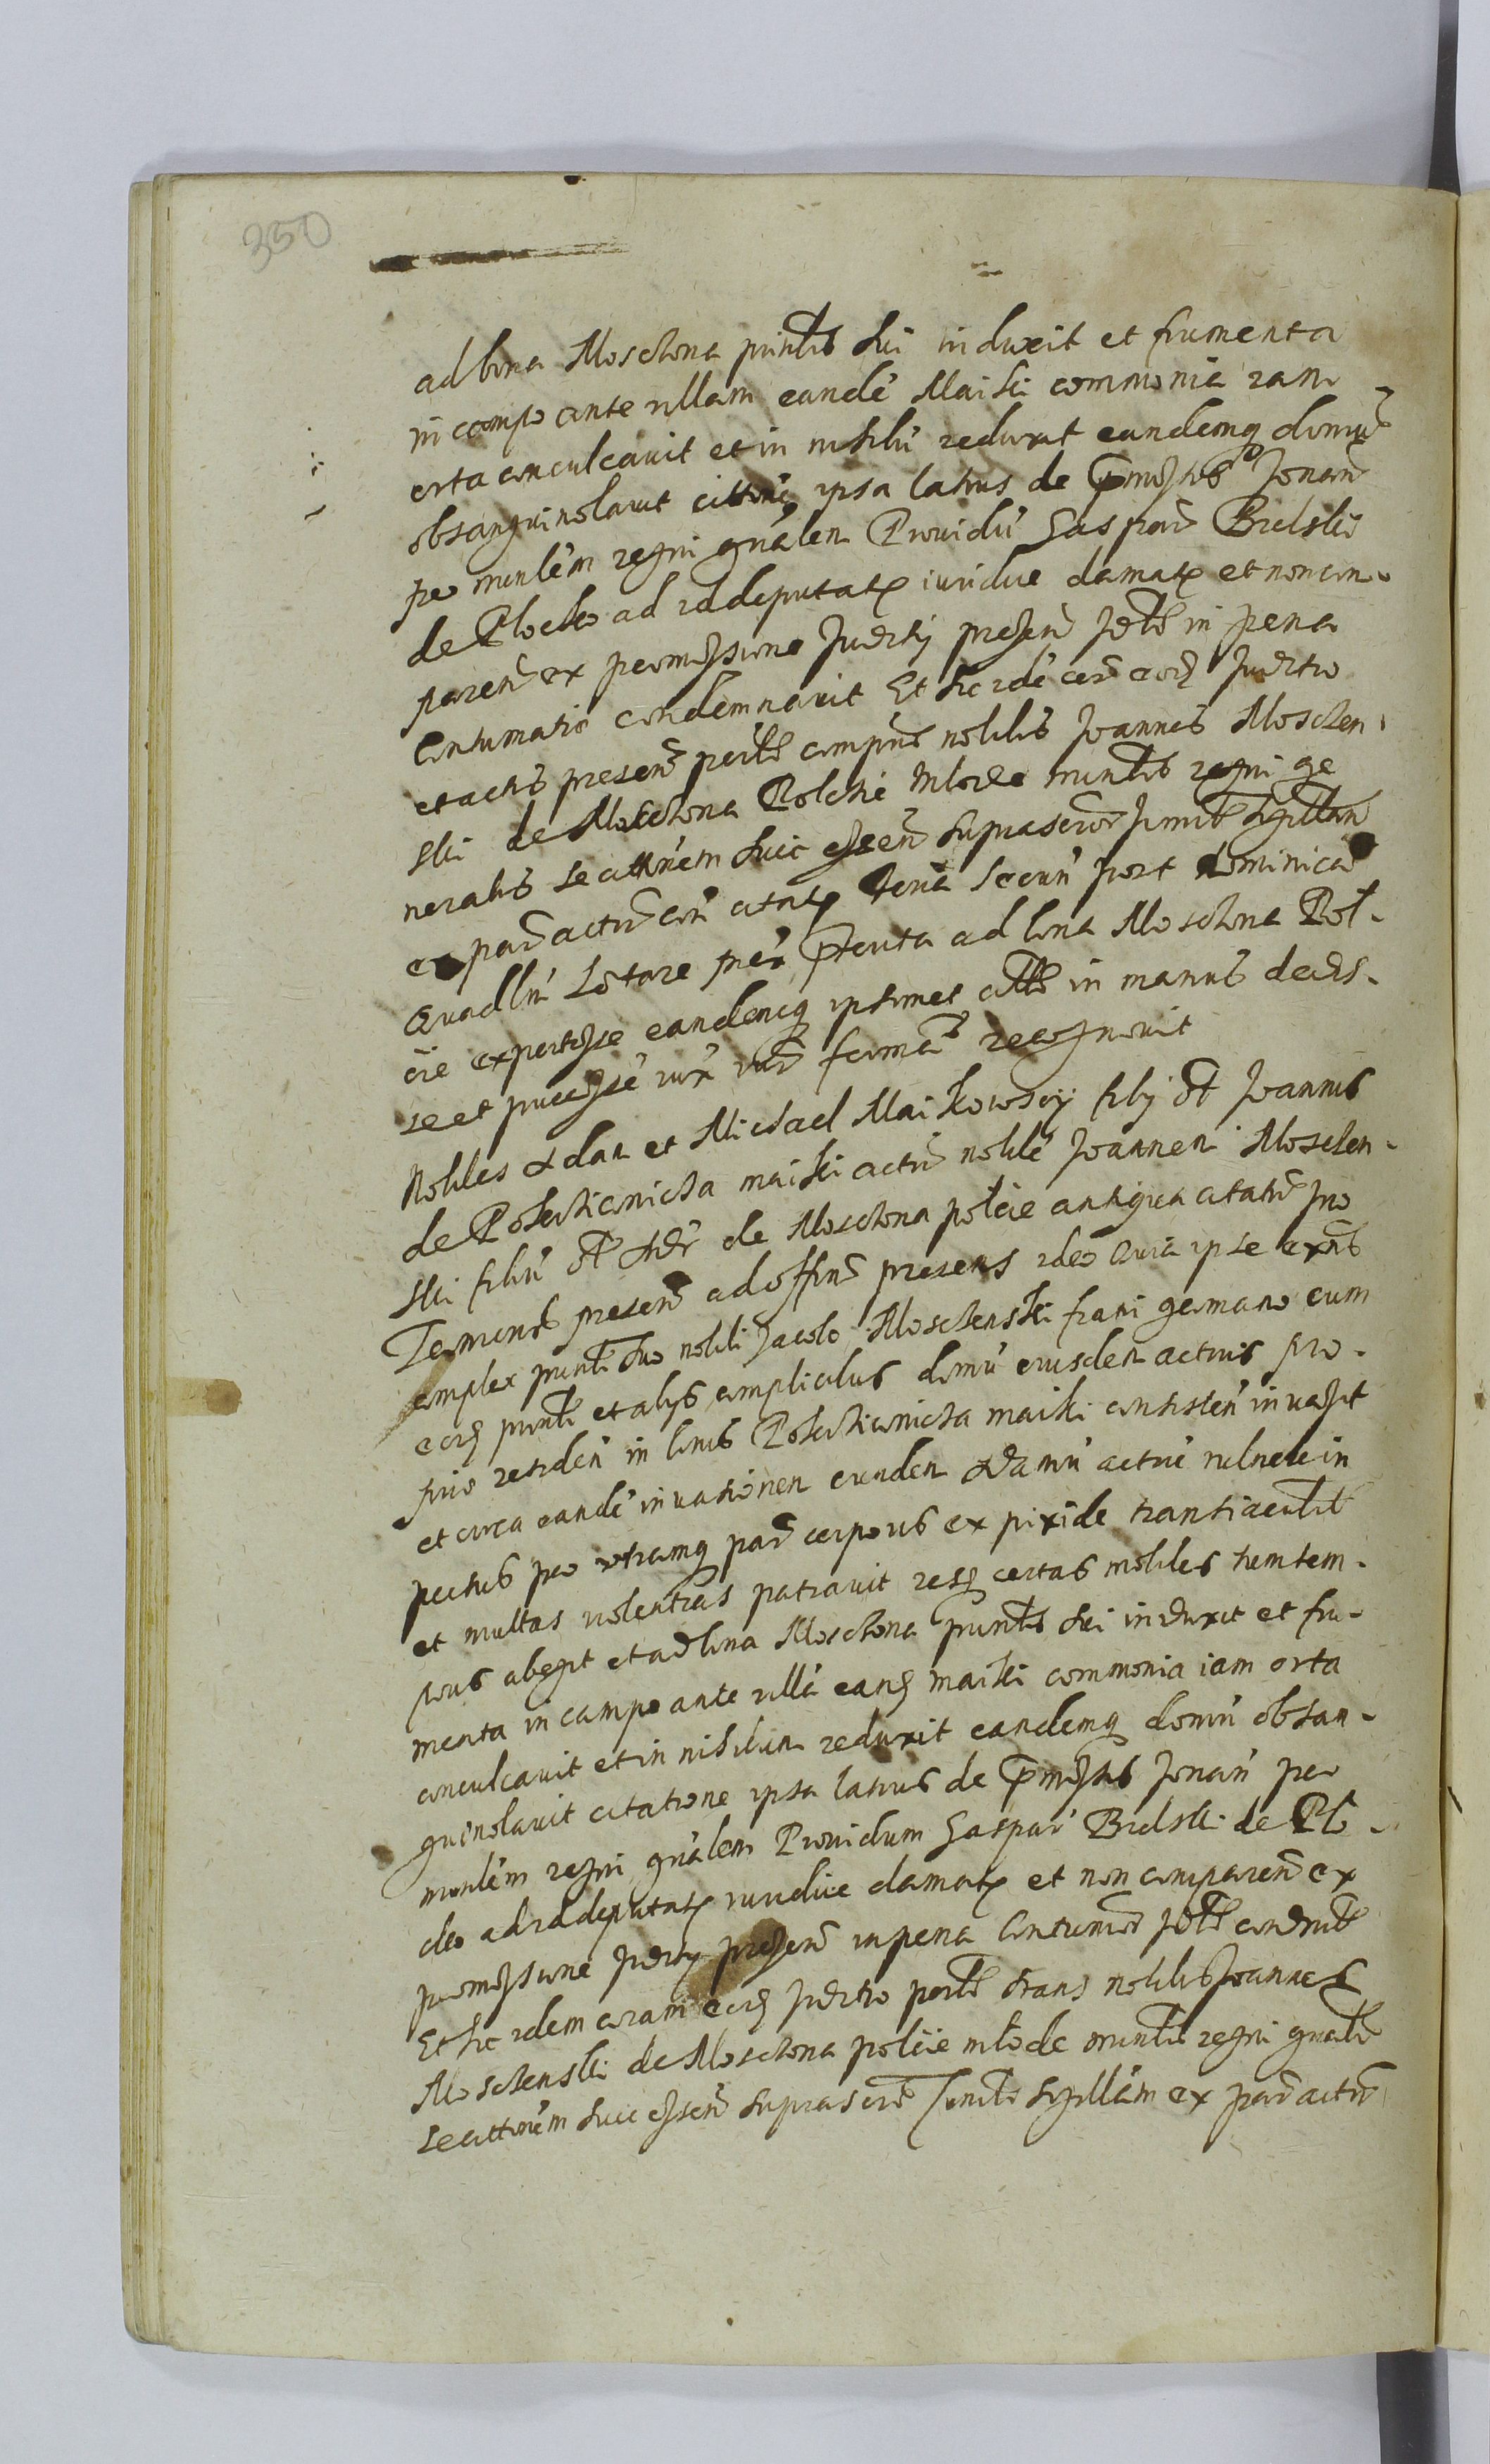 350
ad bona Moschona printis sui induxit et frumenta
in campo ante villam eandē Maiski commonia iam
orta conculcavit et in nihilū reduxit eandemq domū
obsanguinolavit citone ipsa latius de pmissis sonan
per mintēm regni gnālem Providū Gaspar Bielski
de Plocko ad id deputat iuridice clamat et non com
paren ex permissione Judicy presen in pena
Contumatie condemnavit Et hic idē cor eod Judicio
et actis presen perslr compns nobilis Joannes Moschen
ski de Moschona Polskie mlode mintis regni ge
neralis se citonem huic essen suprascr simil sigillan
ex par actor con citat feria secun post dominica
Quadlm Letare prēr ad bona Moschona Pol
cie exportasse eandemq ipsimet cito in manus dedis
se et precessē iux recognovit
Nobiles Adam et Michael Maikowscy filij ol Joannis
de Poswticonicza maiski actor nobilē Joannem Moschen
ski filiū ol de Moschona polcie antiqua citatu pro
Termino presen ad offm presens ideo Quia ipse exns
complex printi suo nobili Jacobo Moschenski frani germano cum
eod printi et alys complicibus domū eiusdem actoris pro
prio residen in bonis Poswticonicza maiski consisten invasit
et circa eandē invationem eundem Adamū actorē vulnere in
pectus per utramq par corporis ex pixide transiacentib
et multas violentias patravit resq certas mobiles
abegit et ad bona Moschona printis sui induxit et fru
menta in campo ante villā eand maiski commonia iam orta
conculcavit et in nihilum reduxit eandemq domū obsan
guinolavit citatione ipsa latius de pmissis sonan per
mintēm regni gnālem Providum Gaspar Bielski de Plo
cko ad id deputat iuridice clamat et non comparen ex
permissione Judicy presen in pena Contumae condnit
Et hic idem coram eod Judicio perslr stans nobilis Joannes
Moschenski de Moschona polcie mlode mintis regni gnalis
se citonem huic essen suprascr simil sigillam ex par actor